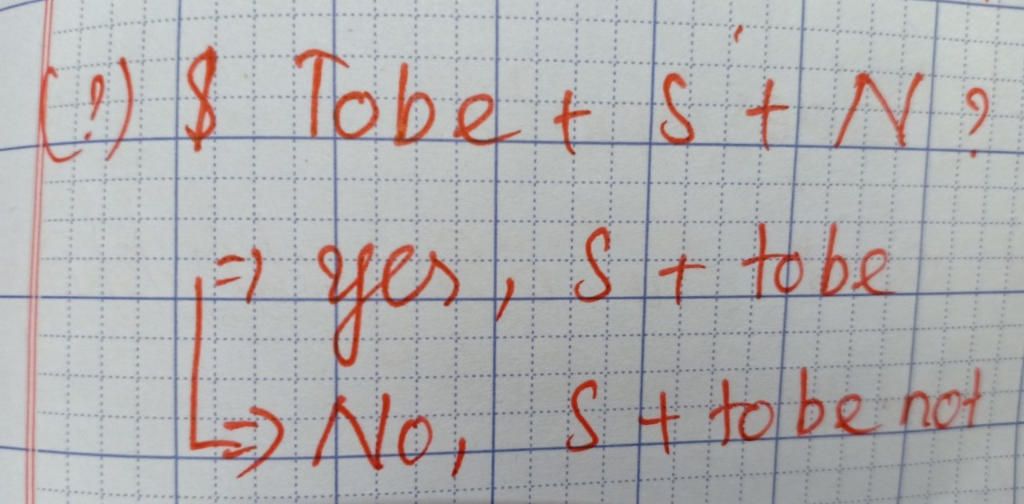 (?) S Tobe + S + N ?
=> yes, S + tobe
=> No, S + to be not